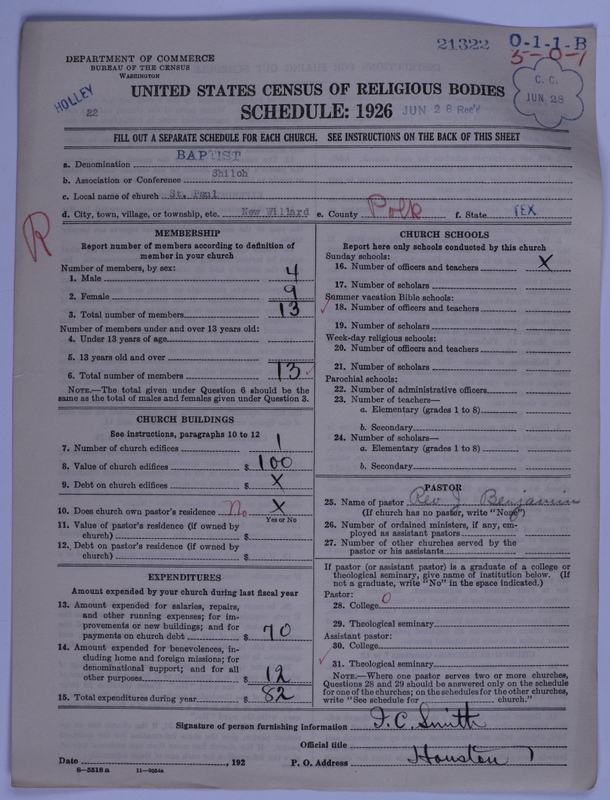 21322 0-1-1-B
5-0-1
DEPARTMENT OF COMMERCE
BUREAU OF THE CENSUS
WASHINGTON
C. C.
JUN 28
HOLLEY
22
UNITED STATES CENSUS OF RELIGIOUS BODIES
SCHEDULE: 1926 JUN 28 Rec'd
FILL OUT A SEPARATE SCHEDULE FOR EACH CHURCH. SEE INSTRUCTIONS ON THE BACK OF THIS SHEET
a. Denomination BAPTIST
b. Association or Conference Shiloh
c. Local name of church St. Paul
d. City, town, village, or township, etc. New Willard e. County Polk f. State TEX
R
MEMBERSHIP
Report number of members according to definition of
member in your church
Number of members, by sex:
1. Male 4
2. Female 9
3. Total number of members 13
Number of members under and over 13 years old:
4. Under 13 years of age
5. 13 years old and over
6. Total number of members 13
NOTE.—The total given under Question 6 should be the
same as the total of males and females given under Question 3.
CHURCH BUILDINGS
See instructions, paragraphs 10 to 12
7. Number of church edifices 1
8. Value of church edifices $ 100
9. Debt on church edifices $ X
10. Does church own pastor's residence No X
Yes or No
11. Value of pastor's residence (if owned by
church) $
12. Debt on pastor's residence (if owned by
church) $
EXPENDITURES
Amount expended by your church during last fiscal year
13. Amount expended for salaries, repairs,
and other running expenses; for im-
provements or new buildings; and for
payments on church debt $ 70
14. Amount expended for benevolences, in-
cluding home and foreign missions; for
denominational support; and for all
other purposes $ 12
15. Total expenditures during year $ 82
CHURCH SCHOOLS
Report here only schools conducted by this church
Sunday schools:
16. Number of officers and teachers X
17. Number of scholars
Summer vacation Bible schools:
18. Number of officers and teachers
19. Number of scholars
Week-day religious schools:
20. Number of officers and teachers
21. Number of scholars
Parochial schools:
22. Number of administrative officers
23. Number of teachers—
a. Elementary (grades 1 to 8)
b. Secondary
24. Number of scholars—
a. Elementary (grades 1 to 8)
b. Secondary
PASTOR
25. Name of pastor Rev J Benjamin
(If church has no pastor, write "None")
26. Number of ordained ministers, if any, em-
ployed as assistant pastors
27. Number of other churches served by the
pastor or his assistants
If pastor (or assistant pastor) is a graduate of a college or
theological seminary, give name of institution below. (If
not a graduate, write "No" in the space indicated.)
Pastor:
28. College 0
29. Theological seminary
Assistant pastor:
30. College
31. Theological seminary
NOTE.—Where one pastor serves two or more churches,
Questions 28 and 29 should be answered only on the schedule
for one of the churches; on the schedules for the other churches,
write "See schedule for church."
Signature of person furnishing information I. C. Smith
Official title
Date , 192 P. O. Address Houston
8—5518 a 11—9054a